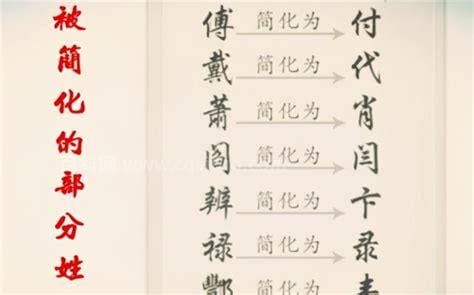 被簡化的部分姓
傅 简化为 付
戴 简化为 代
萧 简化为 肖
阎 简化为 闫
辨 简化为 卞
禄 简化为 录
酆 简化为